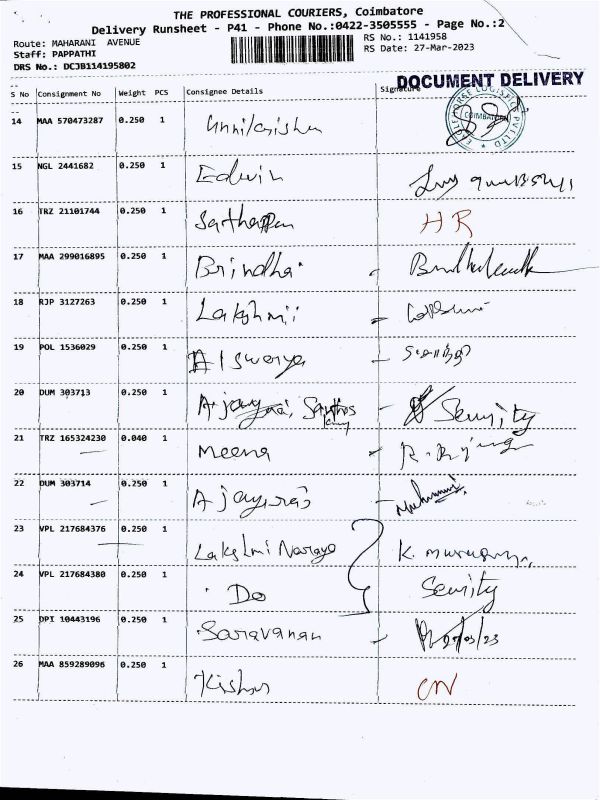 THE PROFESSIONAL COURIERS, Coimbatore
Delivery Runsheet - P41 - Phone No.:0422-3505555 - Page No.:2
Route: MAHARANI AVENUE
RS No.: 1141958
Staff: PAPPATHI
RS Date: 27-Mar-2023
DRS No.: DCJB114195802
DOCUMENT DELIVERY
S No Consignment No Weight PCS Consignee Details Signature
14 MAA 570473287 0.250 1
COIMBATORE
15 NGL 2441682 0.250 1 Edwin
16 TRZ 21101744 0.250 1 Sathappan HR
17 MAA 299016895 0.250 1 Brindha
18 RJP 3127263 0.250 1 Lakshmi
19 POL 1536029 0.250 1 Aiswarya
20 DUM 303713 0.250 1 Security
21 TRZ 165324230 0.040 1 Meena
22 DUM 303714 0.250 1 Ajayraj
23 VPL 217684376 0.250 1 Lakshmi Naraya K.
24 VPL 217684380 0.250 1 Do Security
25 DPI 10443196 0.250 1 Saravanan 27/03/23
26 MAA 859289096 0.250 1 Kishor